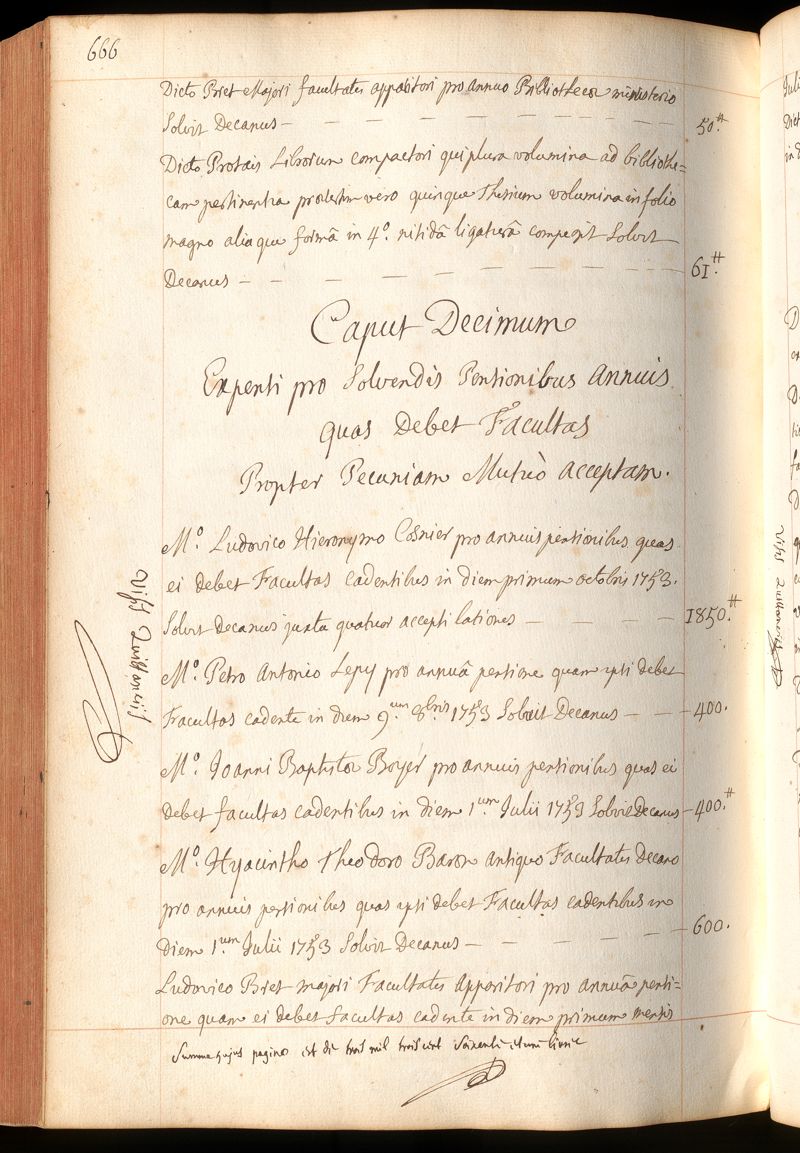 666
Dicto Bret Majori facultatis apparitori pro annuo Bibliothecæ ministerio
Solvit Decanus — 50.tt
Dicto Protais Librorum compactori qui plura volumina ad bibliothe=
cam pertinentia præsertim vero quinque Thesium volumina in folio
magno aliaque formâ in 4º. nitidâ ligaturâ compegit Solvit
Decanus — 61.tt
Caput Decimum
Expensi pro Solvendis Pensionibus Annuis
quas Debet Facultas
Propter Pecuniam Mutuò acceptam.
Mº. Ludovico Hieronymo Cosnier pro annuis pensionibus quas
ei debet Facultas cadentibus in diem primum octobris 1753.
Solvit Decanus juxta quatuor acceptilationes — 1850.tt
Mº. Petro Antonio Lepy pro annuâ pensione quam ipsi debet
Facultas cadente in diem 9.um 8.bris 1753 Solvit Decanus — 400.
Mº. Joanni Baptistæ Boyer pro annuis pensionibus quas ei
debet facultas cadentibus in diem 1.um Julii 1753 Solvit Decanus — 400.tt
Mº. Hyacintho Theodoro Baron antiquo Facultatis Decano
pro annuis pensionibus quas ipsi debet Facultas cadentibus in
diem 1.um Julii 1753 Solvit Decanus — 600.
Ludovico Bret majori Facultatis Apparitori pro annuâ pensi=
one quam ei debet facultas cadente in diem primum mensis
Summa hujus paginæ est de trois mil trois cent soixante et une livre